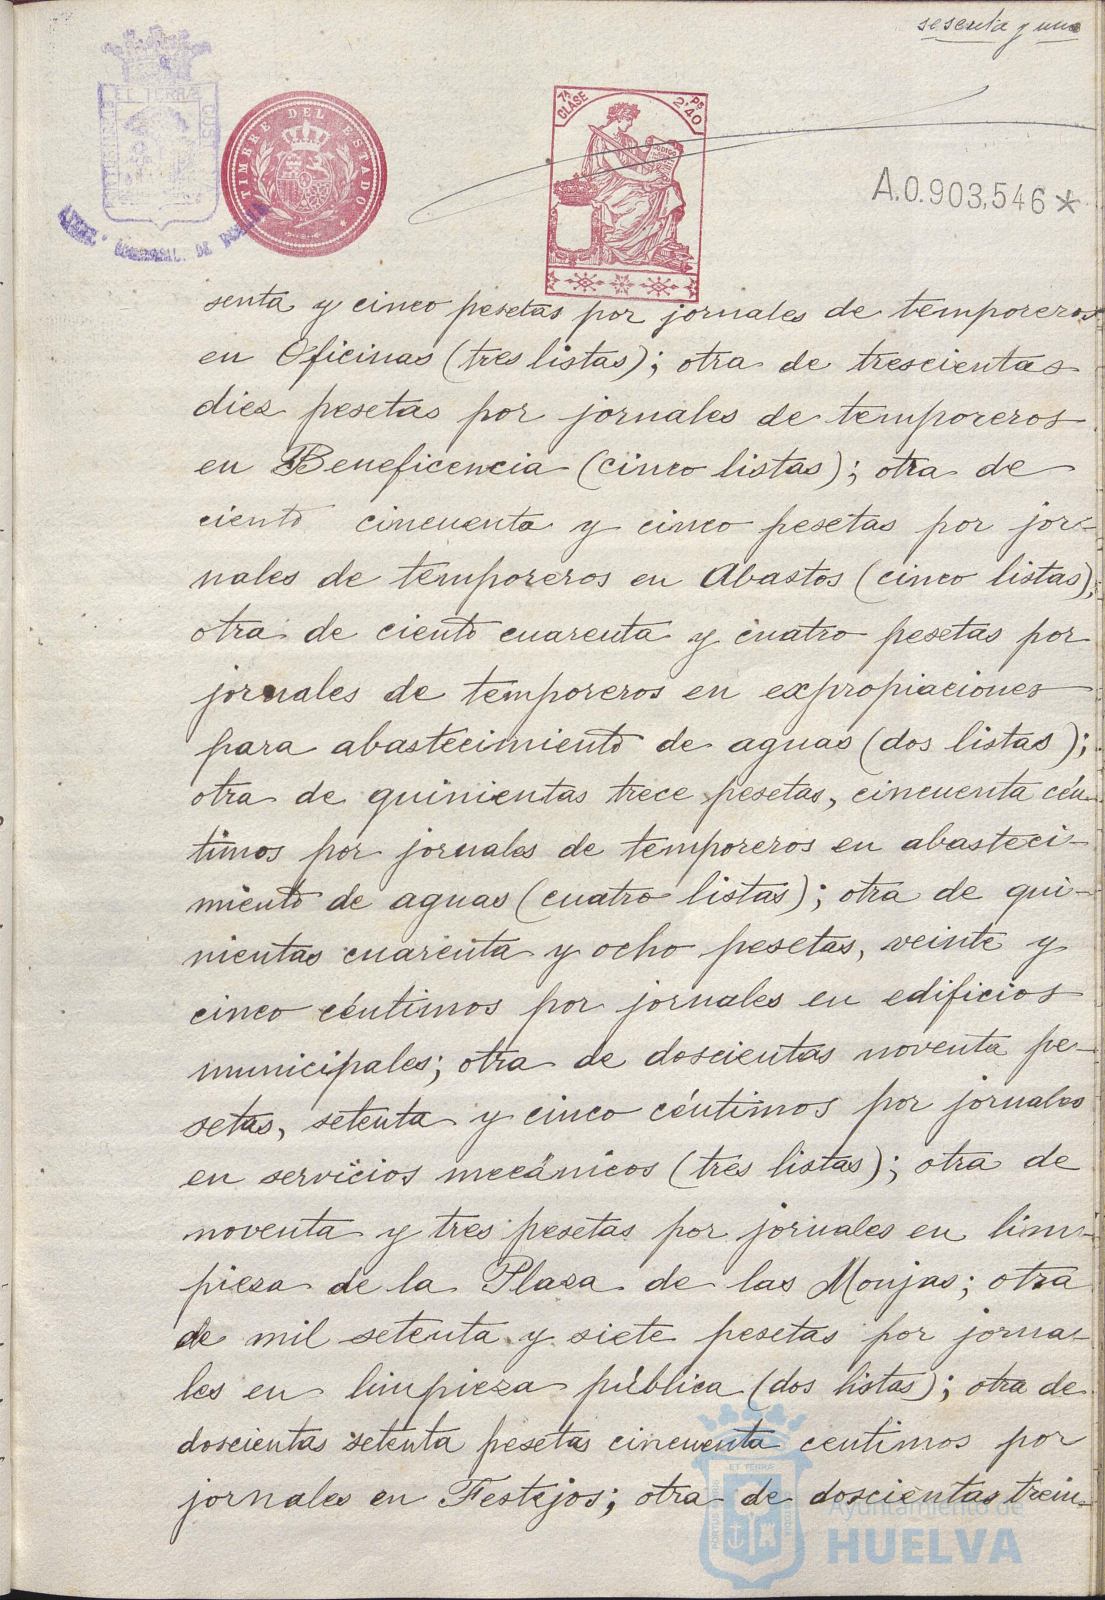 sesenta y una
ET TERRÆ CUS
TIMBRE DEL ESTADO
7ª CLASE
Ps 2'40
CODIGO
A.0.903,546*
senta y cinco pesetas por jornales de temporeros
en Oficinas (tres listas); otra de trescientas
diez pesetas por jornales de temporeros
en Beneficencia (cinco listas); otra de
ciento cincuenta y cinco pesetas por jor-
nales de temporeros en Abastos (cinco listas);
otra de ciento cuarenta y cuatro pesetas por
jornales de temporeros en expropiaciones
para abastecimiento de aguas (dos listas);
otra de quinientas trece pesetas, cincuenta cén-
timos por jornales de temporeros en abasteci-
miento de aguas (cuatro listas); otra de qui-
nientas cuarenta y ocho pesetas, veinte y
cinco céntimos por jornales en edificios
municipales; otra de doscientas noventa pe-
setas, setenta y cinco céntimos por jornales
en servicios mecánicos (tres listas); otra de
noventa y tres pesetas por jornales en lim-
pieza de la Plaza de las Monjas; otra
de mil setenta y siete pesetas por jorna-
les en limpieza pública (dos listas); otra de
doscientas setenta pesetas cincuenta centimos por
jornales en Festejos; otra de doscientas trein-
ET TERRÆ
Ayuntamiento de
HUELVA